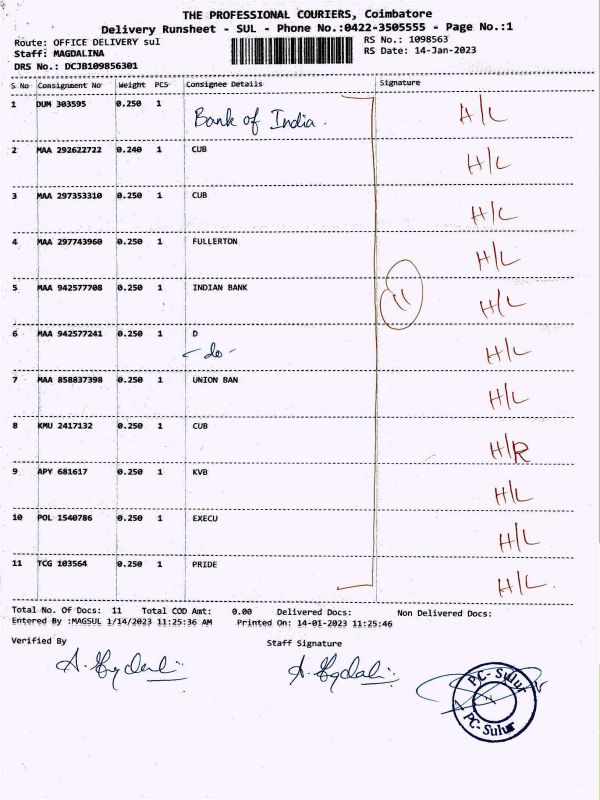 THE PROFESSIONAL COURIERS, Coimbatore
Delivery Runsheet - SUL - Phone No.:0422-3505555 - Page No.:1
Route: OFFICE DELIVERY sul RS No.: 1098563
Staff: MAGDALINA RS Date: 14-Jan-2023
DRS No.: DCJB109856301
S No Consignment No Weight PCS Consignee Details Signature
1 DUM 303595 0.250 1 Bank of India. H/L
2 MAA 292622722 0.240 1 CUB H/L
3 MAA 297353310 0.250 1 CUB H/L
4 MAA 297743960 0.250 1 FULLERTON H/L
5 MAA 942577708 0.250 1 INDIAN BANK 11 H/L
6 MAA 942577241 0.250 1 D H/L
- do -
7 MAA 858837398 0.250 1 UNION BAN H/L
8 KMU 2417132 0.250 1 CUB H/R
9 APY 681617 0.250 1 KVB H/L
10 POL 1540786 0.250 1 EXECU H/L
11 TCG 103564 0.250 1 PRIDE H/L
Total No. Of Docs: 11 Total COD Amt: 0.00 Delivered Docs: Non Delivered Docs:
Entered By :MAGSUL 1/14/2023 11:25:36 AM Printed On: 14-01-2023 11:25:46
Verified By Staff Signature
PC-Sulur
PC-Sulur